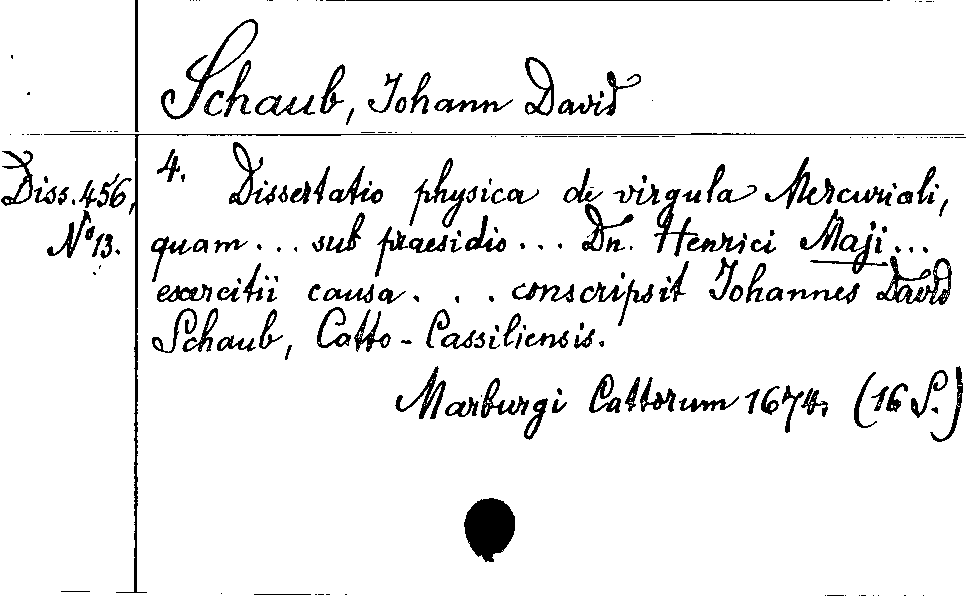 Schaub, Johann David
Diss. 456, 4. Dissertatio physica de virgula Mercuriali,
No 13. quam... sub praesidio... Dn. Henrici Maji...
exercitii causa... conscripsit Johannes David
Schaub, Catto-Cassiliensis.
Marburgi Cattorum (16 S.)